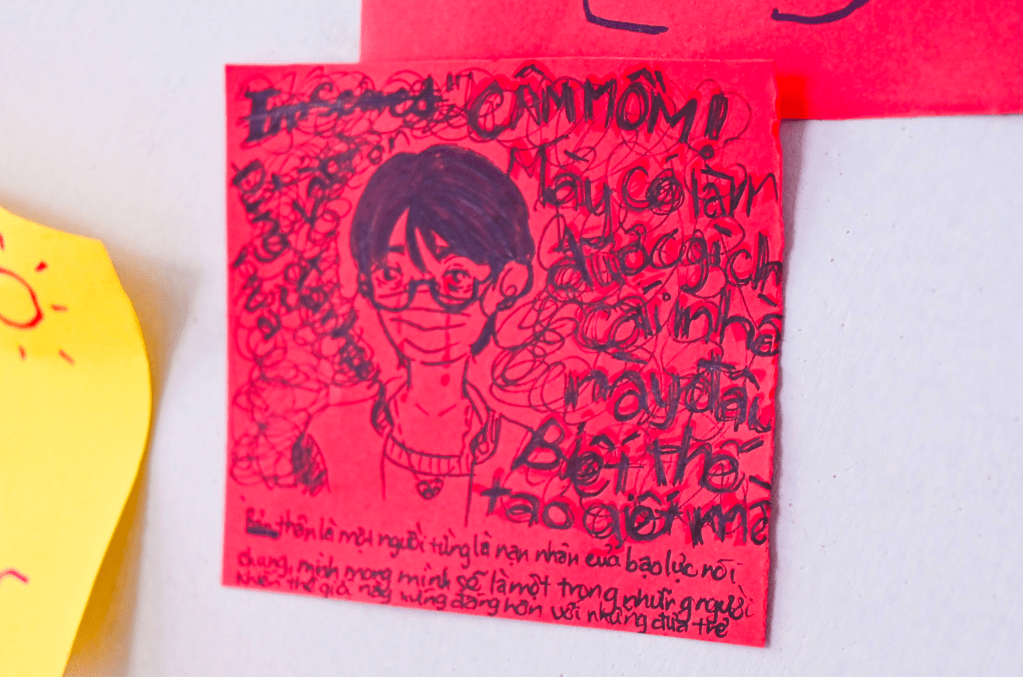 CÂM MỒM!!
Mày có làm
được gì ch
cái nhà
này đâu
Biết thế
tao giết mà
Bản thân là một người từng là nạn nhân của bạo lực nói
chung, mình mong mình sẽ là một trong những người
khiến thế giới này xứng đáng hơn với những đứa trẻ